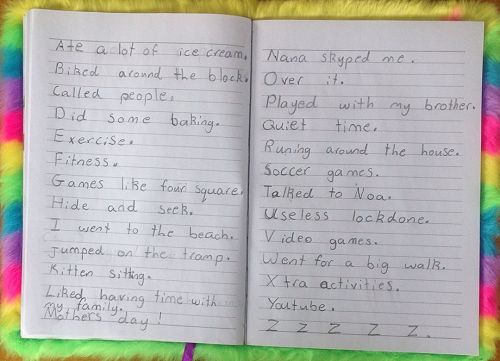 Ate a lot of ice cream.
Biked around the block.
Called people.
Did some baking.
Exercise.
Fitness.
Games like four square.
Hide and seek.
I went to the beach.
Jumped on the tramp.
Kitten sitting.
Liked having time with
my family.
Mothers day!
Nana skyped me.
Over it.
Played with my brother.
Quiet time.
Runing around the house.
Soccer games.
Talked to Noa.
Useless lockdone.
Video games.
Went for a big walk.
X tra activities.
Youtube.
Z Z Z Z Z.